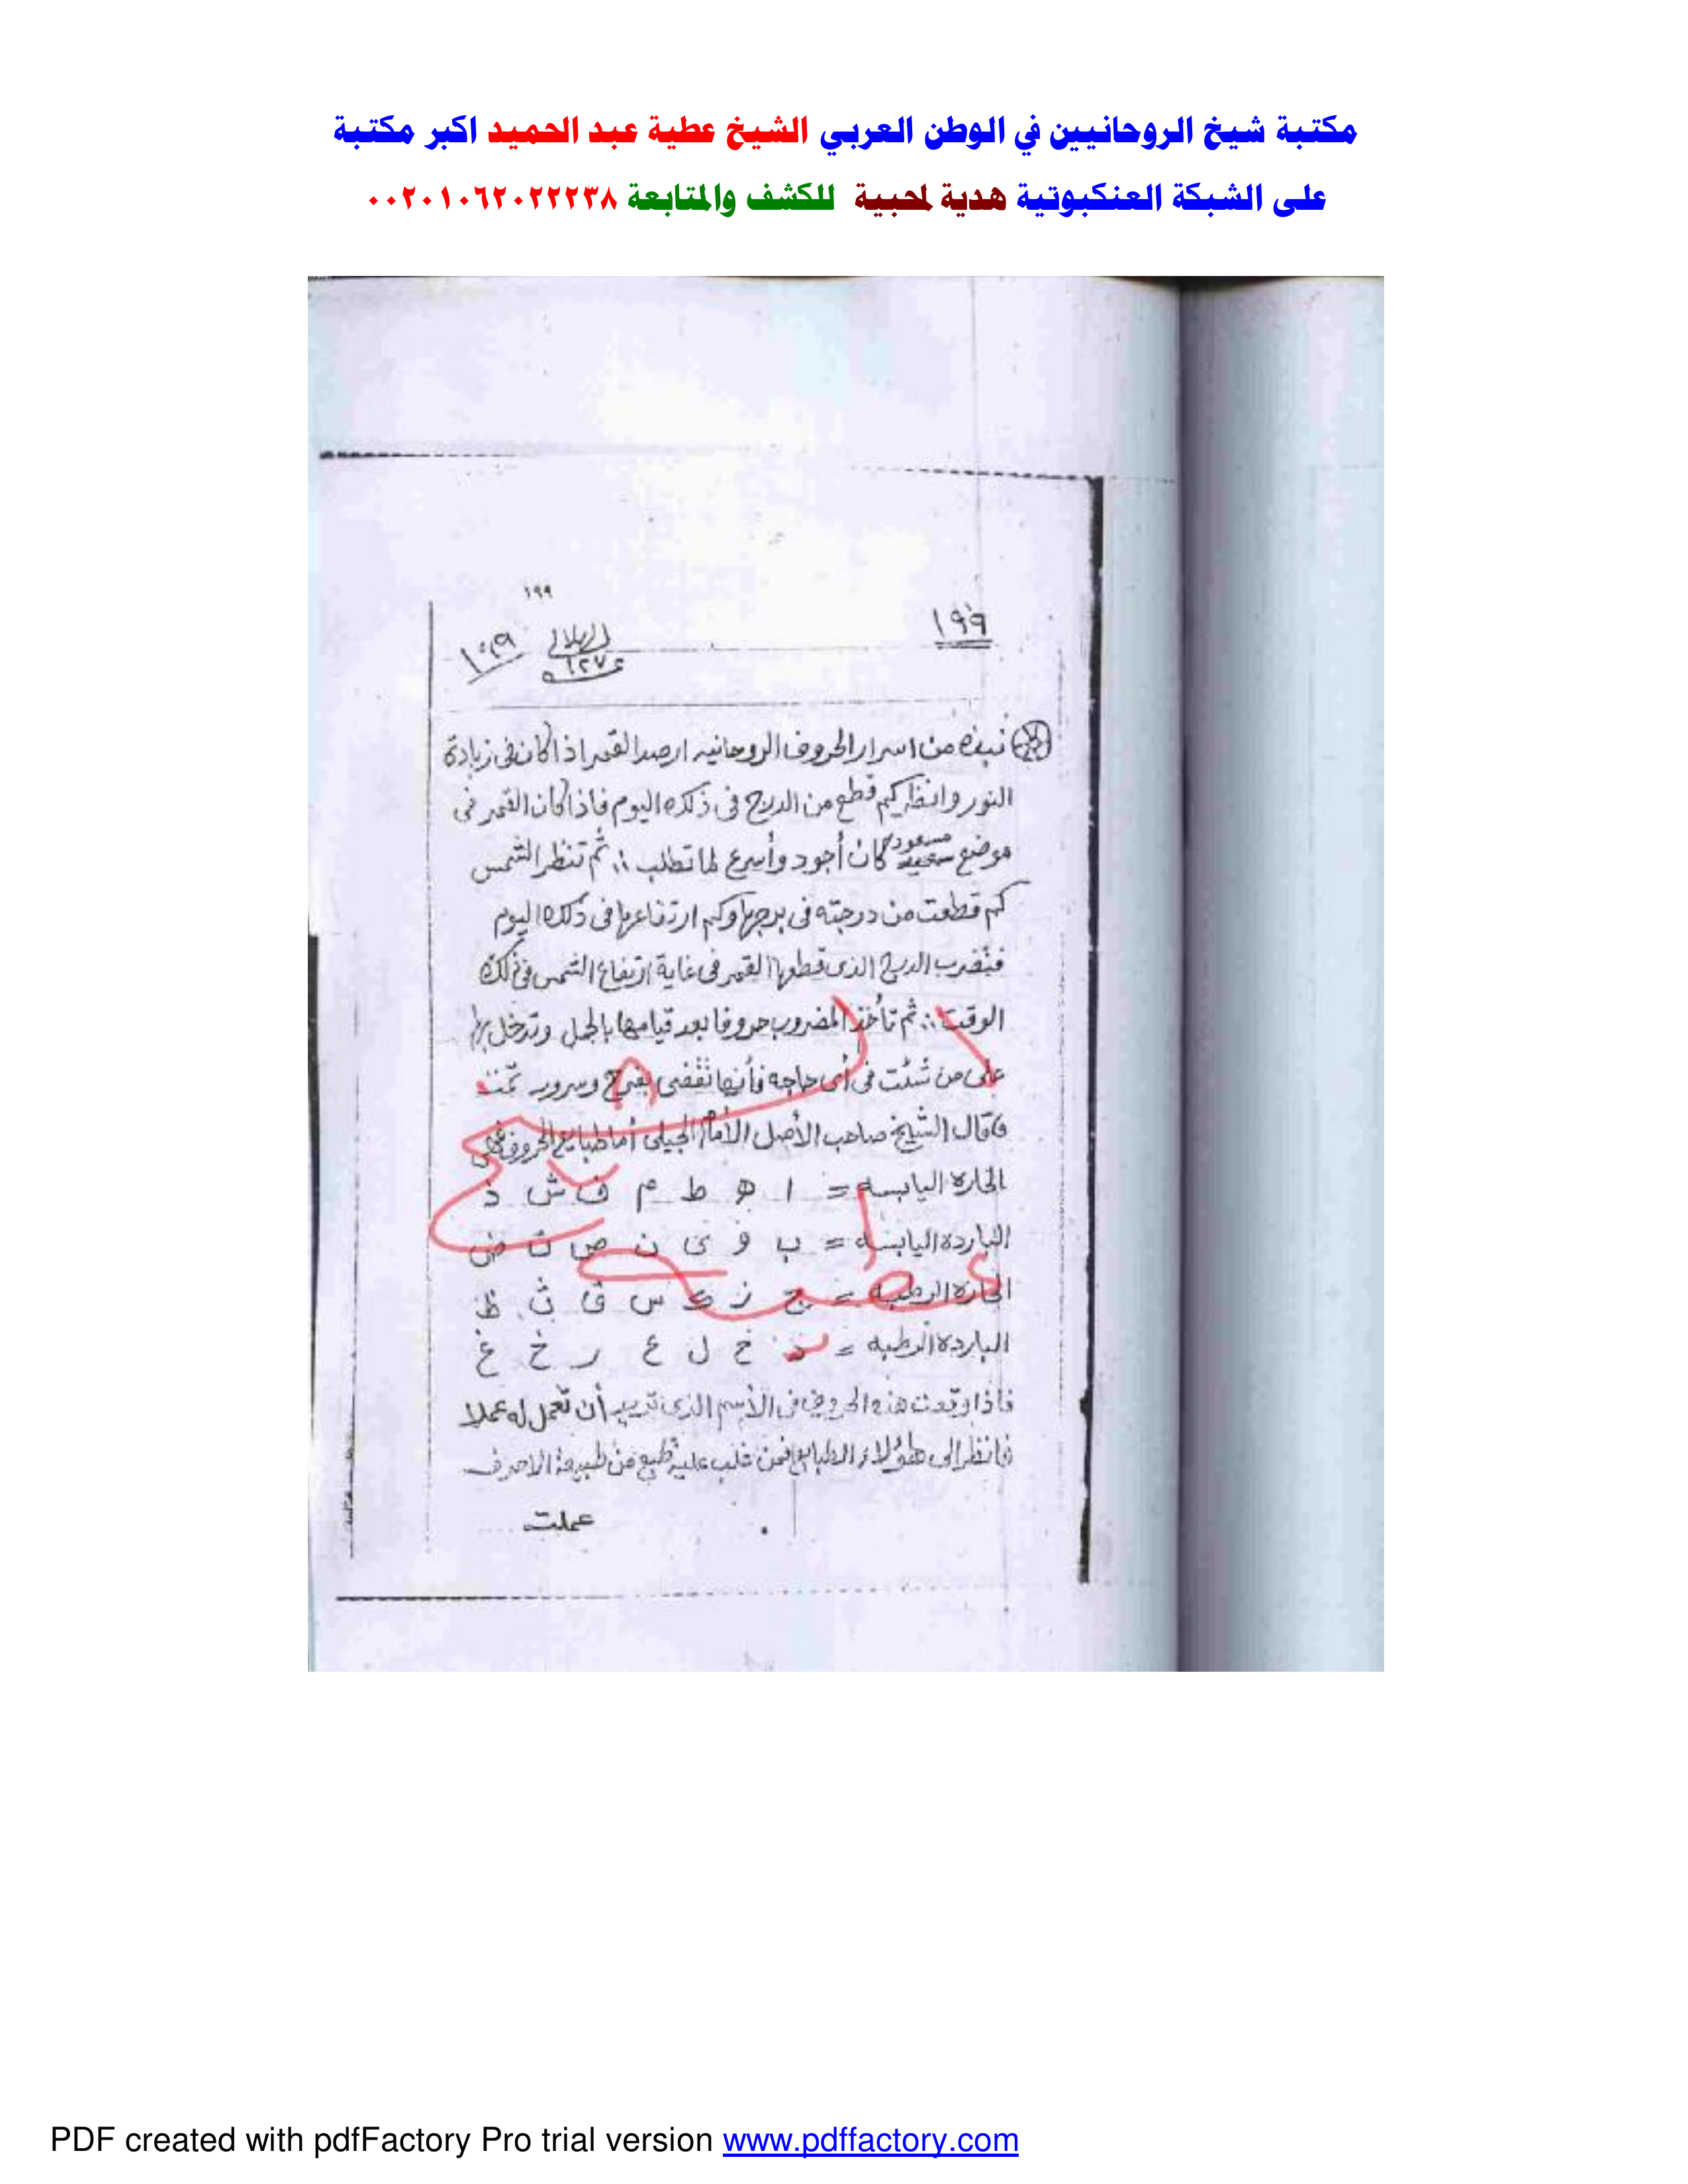 مكتبة شيخ الروحانيين في الوطن العربي الشيخ عطية عبد الحميد اكبر مكتبة
على الشبكة العنكبوتية هدية لمحبية للكشف والمتابعة ٠٠٢٠١٠٦٢٠٢٢٢٣٨
١٩٩
١٩٩
الهلالى
نبذه من اسرار الحروف الروحانيه ارصد القمر اذا كان فى زيادة
النور وانظر كم قطع من الدرج فى ذلك اليوم فاذا كان القمر فى
موضع سعيد مسعود كان أجود وأسرع لما تطلب ∴ ثم تنظر الشمس
كم قطعت من درجته فى برجها وكم ارتفاعها فى ذلك اليوم
فتضرب الدرج الذى قطعها القمر فى غاية ارتفاع الشمس فى ذلك
الوقت ∴ ثم تأخذ المضروب حروفا بعد قيامها بالجمل وتدخل بها
على من شئت فى أى حاجه فأنها تقضى بفرح وسرور تمت
قال الشيخ صاحب الأصل الأمام الجيلى أما طبايع الحروف فهى
الحاره اليابسه = ا ه ط م ف ش ذ
البارده اليابسه = ب و ى ن ص ت ض
الحاره الرطبه = ج ز ك س ق ث ظ
البارده الرطبه = د ح ل ع ر خ غ
فاذا وجدت هذه الحروف فى الأسم الذى تريد أن تعمل له عملا
فانظر الى هؤلاء الطبايع فمن غلب عليه طبع من طبيعة الاحرف
عملت
PDF created with pdfFactory Pro trial version www.pdffactory.com